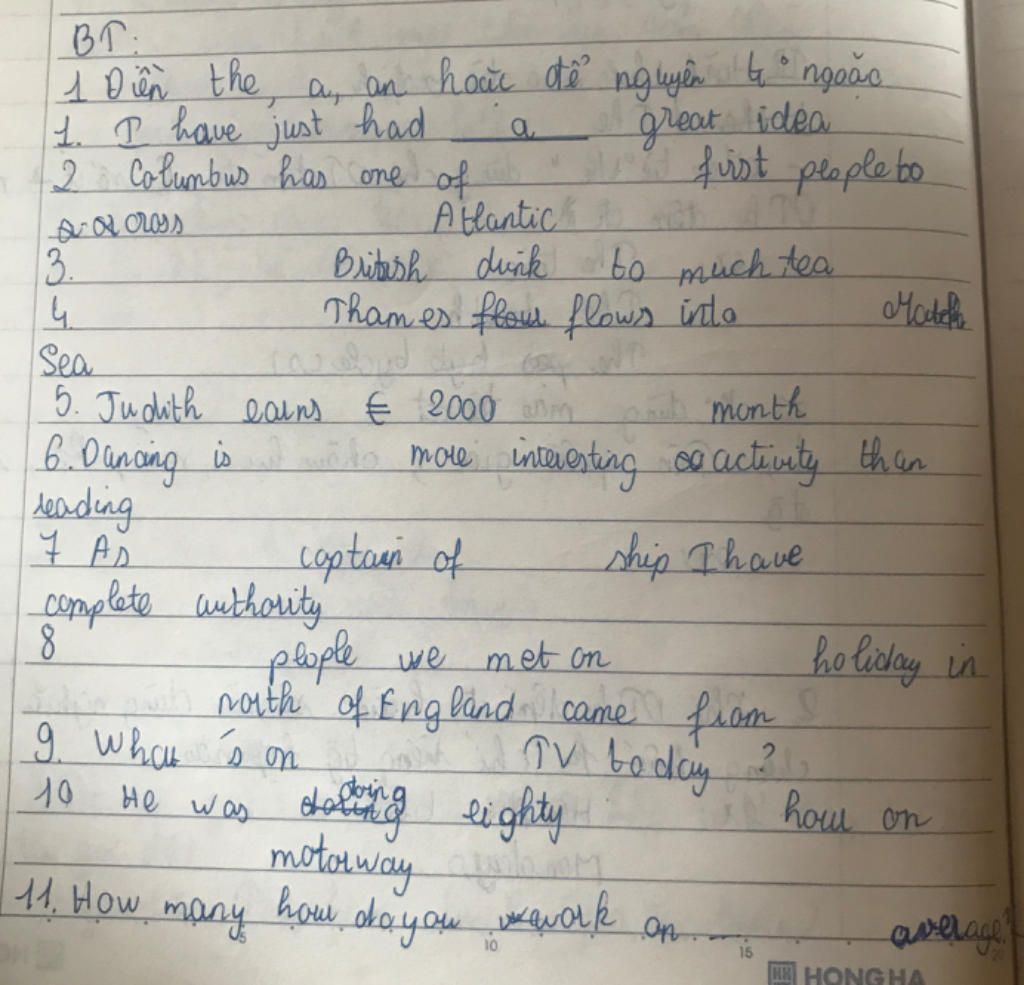 BT:
1 Điền the, a, an hoặc để nguyên từ ngoặc
1. I have just had a great idea
2 Columbus has one of first people to
across Atlantic
3. British drink to much tea
4. Thames flows into
Sea
5. Judith earns € 2000 month
6. Dancing is more interesting activity than
reading
7 As captain of ship I have
complete authority
8 people we met on holiday in
north of England came from
9. What's on TV today ?
10 He was doing eighty hour on
motorway
11. How many hour do you work on average?
5 10 15 20
HH HONG HA